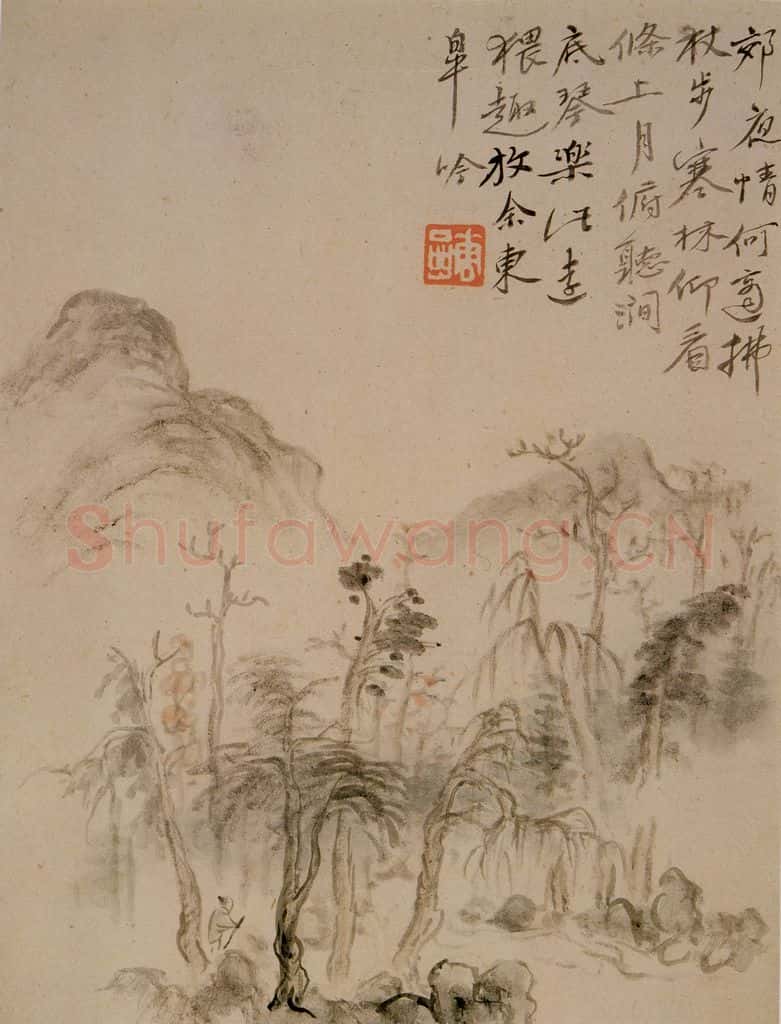 郊夜情何適拂
杖步寒林仰看
條上月俯聽澗
底琴楽
猥趣放余東
皐吟
Shufawang.CN